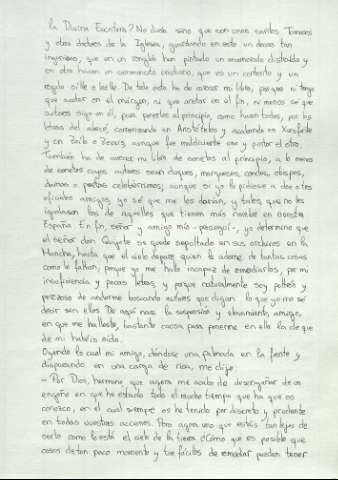 la Divina Escritura? No dirán sino que son unos santos Tomases
y otros doctores de la Iglesia, guardando en esto un decoro tan
ingenioso, que en un renglón han pintado un enamorado distraído y
en otro hacen un sermoncico cristiano, que es un contento y un
regalo oille o leelle. De todo esto ha de carecer mi libro, porque ni tengo
que acotar en el márgen, ni que anotar en el fin, ni menos se que
autores sigo en él, para ponerlos al principio, como hacen todos, por las
letras del abecé, comenzando en Aristóteles y acabando en Xenofonte
y en Zoilo o Zeuxis, aunque fue maldiciente uno y pintor el otro.
También ha de carecer mi libro de sonetos al principio, a lo menos
de sonetos cuyos autores sean duques, marqueses, condes, obispos,
damas o poetas celebérrimos; aunque si yo los pidiese a dos o tres
oficiales amigos, yo sé que me los darían, y tales, que no les
igualasen los de aquellos que tienen más nombre en nuestra
España. En fin, señor y amigo mío -proseguí-, yo determino que
el señor don Quijote se quede sepultado en sus archivos en la
Mancha, hasta que el cielo depare quien le adorne de tantas cosas
como le faltan; porque yo me hallo incapaz de remediarlas, por mi
insuficiencia y pocas letras, y porque naturalmente soy poltrón y
perezoso de andarme buscando autores que digan lo que yo me sé
decir sin ellos. De aquí nace la suspensión y elevamiento, amigo,
en que me hallaste, bastante causa para ponerme en ella la de que
de mí habéis oído.
Oyendo lo cual mi amigo, dándose una palmada en la frente y
disparando en una carga de risa, me dijo:
- Por Dios, hermano, que agora me acabo de desengañar de un
engaño en que he estado todo el mucho tiempo que ha que os
conozco, en el cual siempre os he tenido por discreto y prudente
en todas vuestras acciones. Pero agora veo que estáis tan lejos de
serlo como lo está el cielo de la tierra ¿Cómo que es posible que
cosas de tan poco momento y tan fáciles de remediar puedan tener